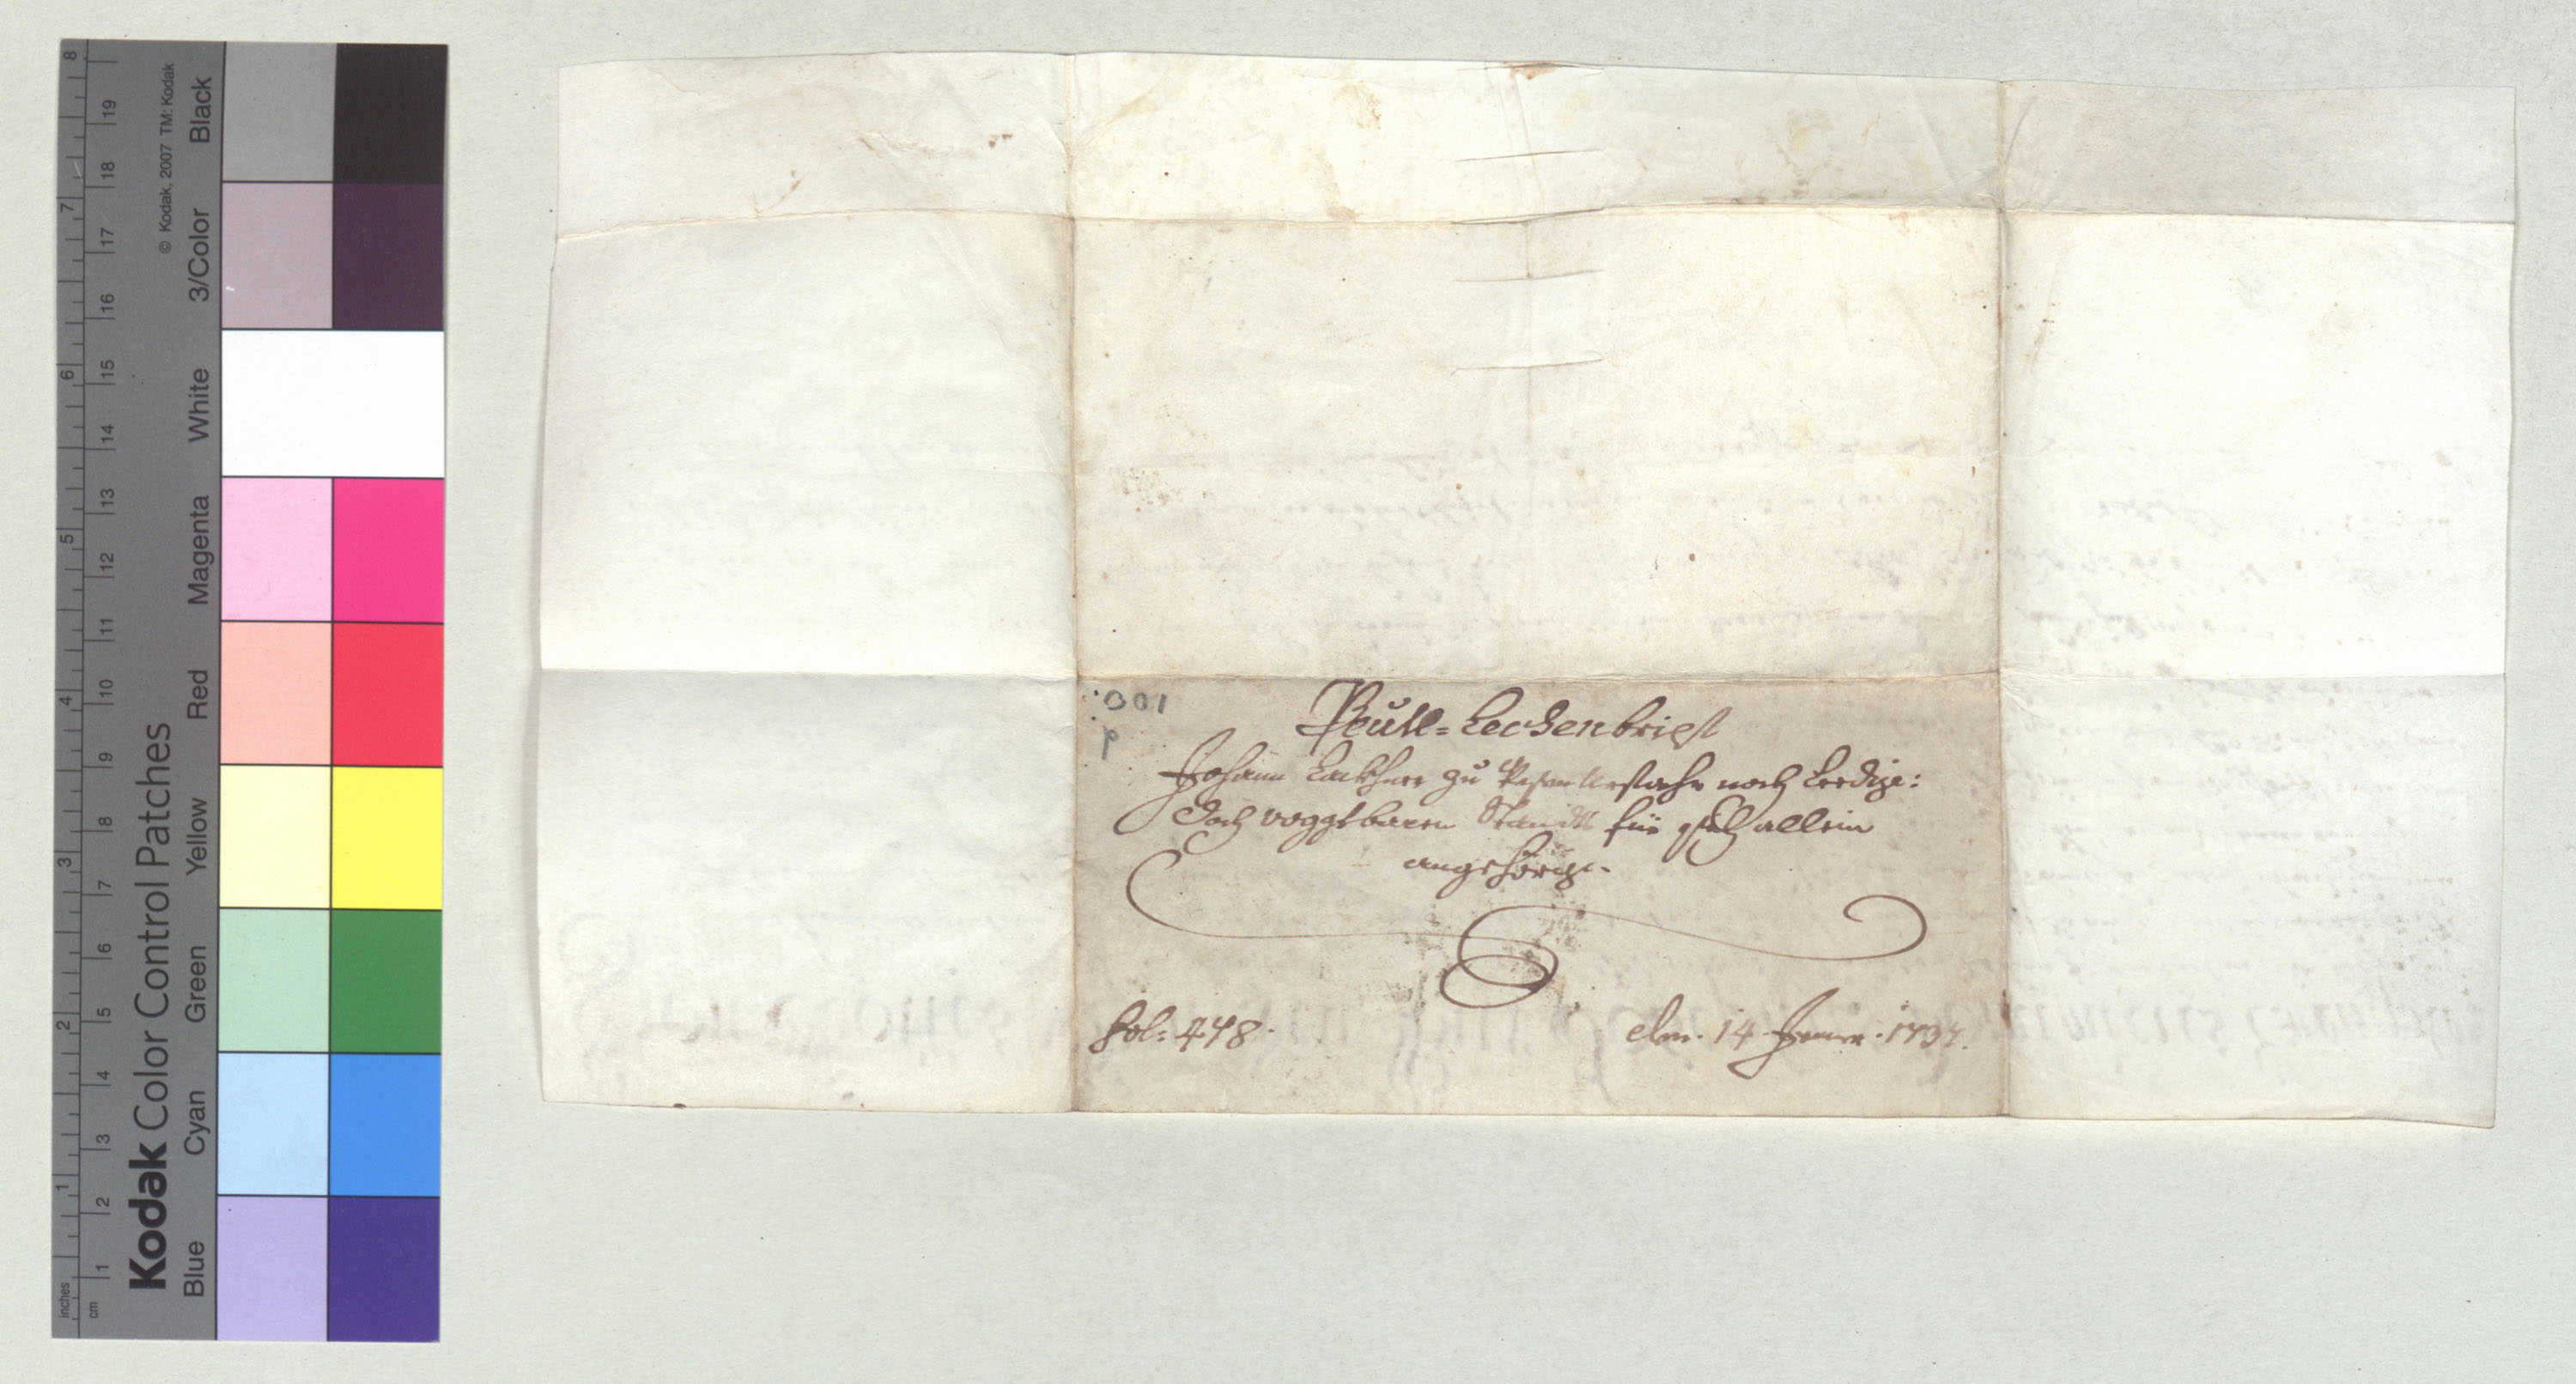 8
7
6
5
4
3
2
1
inches
19
18
17
16
15
14
13
12
11
10
9
8
7
6
5
4
3
2
1
cm
© Kodak, 2007 TM: Kodak
Kodak Color Control Patches
Black
3/Color
White
Magenta
Red
Yellow
Green
Cyan
Blue
001
Johann zu noch Leedige:
doch voggtbaren Standts für sich allein
angehörig.
fol: 478.
den. 14 Jenner. 1737.